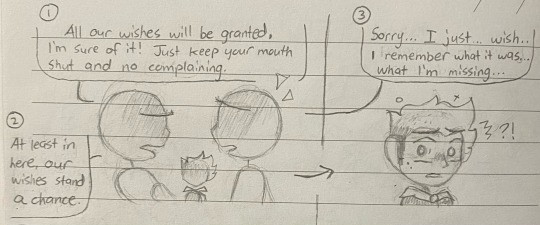 ①
All our wishes will be granted,
I'm sure of it! Just keep your mouth
shut and no complaining.
②
At least in
here, our
wishes stand
a chance.
③
Sorry... I just... wish..
I remember what it was...
what I'm missing...
?!